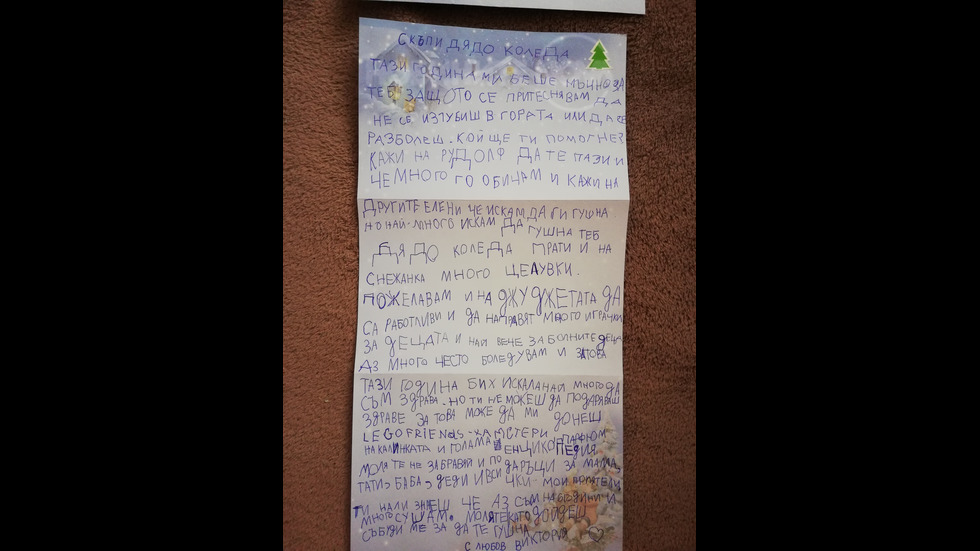 СКЪПИ ДЯДО КОЛЕДА
ТАЗИ ГОДИНА МИ БЕШЕ МЪЧНО ЗА
ТЕБ ЗАЩОТО СЕ ПРИТЕСНЯВАМ ДА
НЕ СЕ ИЗГУБИШ В ГОРАТА ИЛИ ДА СЕ
РАЗБОЛЕШ. КОЙ ЩЕ ТИ ПОМОГНЕ?
КАЖИ НА РУДОЛФ ДА ТЕ ПАЗИ И
ЧЕ МНОГО ГО ОБИЧАМ И КАЖИ НА
ДРУГИТЕ ЕЛЕНИ ЧЕ ИСКАМ ДА ГИ ГУШНА
НО НАЙ-МНОГО ИСКАМ ДА ГУШНА ТЕБ
ДЯДО КОЛЕДА ПРАТИ И НА
СНЕЖАНКА МНОГО ЦЕЛУВКИ.
ПОЖЕЛАВАМ И НА ДЖУДЖЕТАТА ДА
СА РАБОТЛИВИ И ДА НАПРАВЯТ МНОГО ИГРАЧКИ
ЗА ДЕЦАТА И НАЙ ВЕЧЕ ЗА БОЛНИТЕ ДЕЦА
АЗ МНОГО ЧЕСТО БОЛЕДУВАМ И ЗАТОВА
ТАЗИ ГОДИНА БИХ ИСКАЛА НАЙ МНОГО ДА
СЪМ ЗДРАВА. НО ТИ НЕ МОЖЕШ ДА ПОДАРЯВАШ
ЗДРАВЕ ЗА ТОВА МОЖЕ ДА МИ ДОНЕШ
LEGO FRIENDS - ХАМСТЕРИ, ПАРФЮМ
НА КАЛИНКАТА И ГОЛАМА ЕНЦИКОПЕДИЯ
МОЛЯ ТЕ НЕ ЗАБРАВЯЙ И ПОДАРЪЦИ ЗА МАМА,
ТАТИ, БАБА, ДЕДИ И ВСИЧКИ МОИ ПРИЯТЕЛИ
ТИ НАЛИ ЗНАЕШ ЧЕ АЗ СЪМ НА ГОДИНИ И
МНОГО СЛУШАМ. МОЛЯ ТЕ КАТО ДОЙДЕШ
СЪБУДИ МЕ ЗА ДА ТЕ ГУШНА
С ЛЮБОВ ВИКТОРИЯ